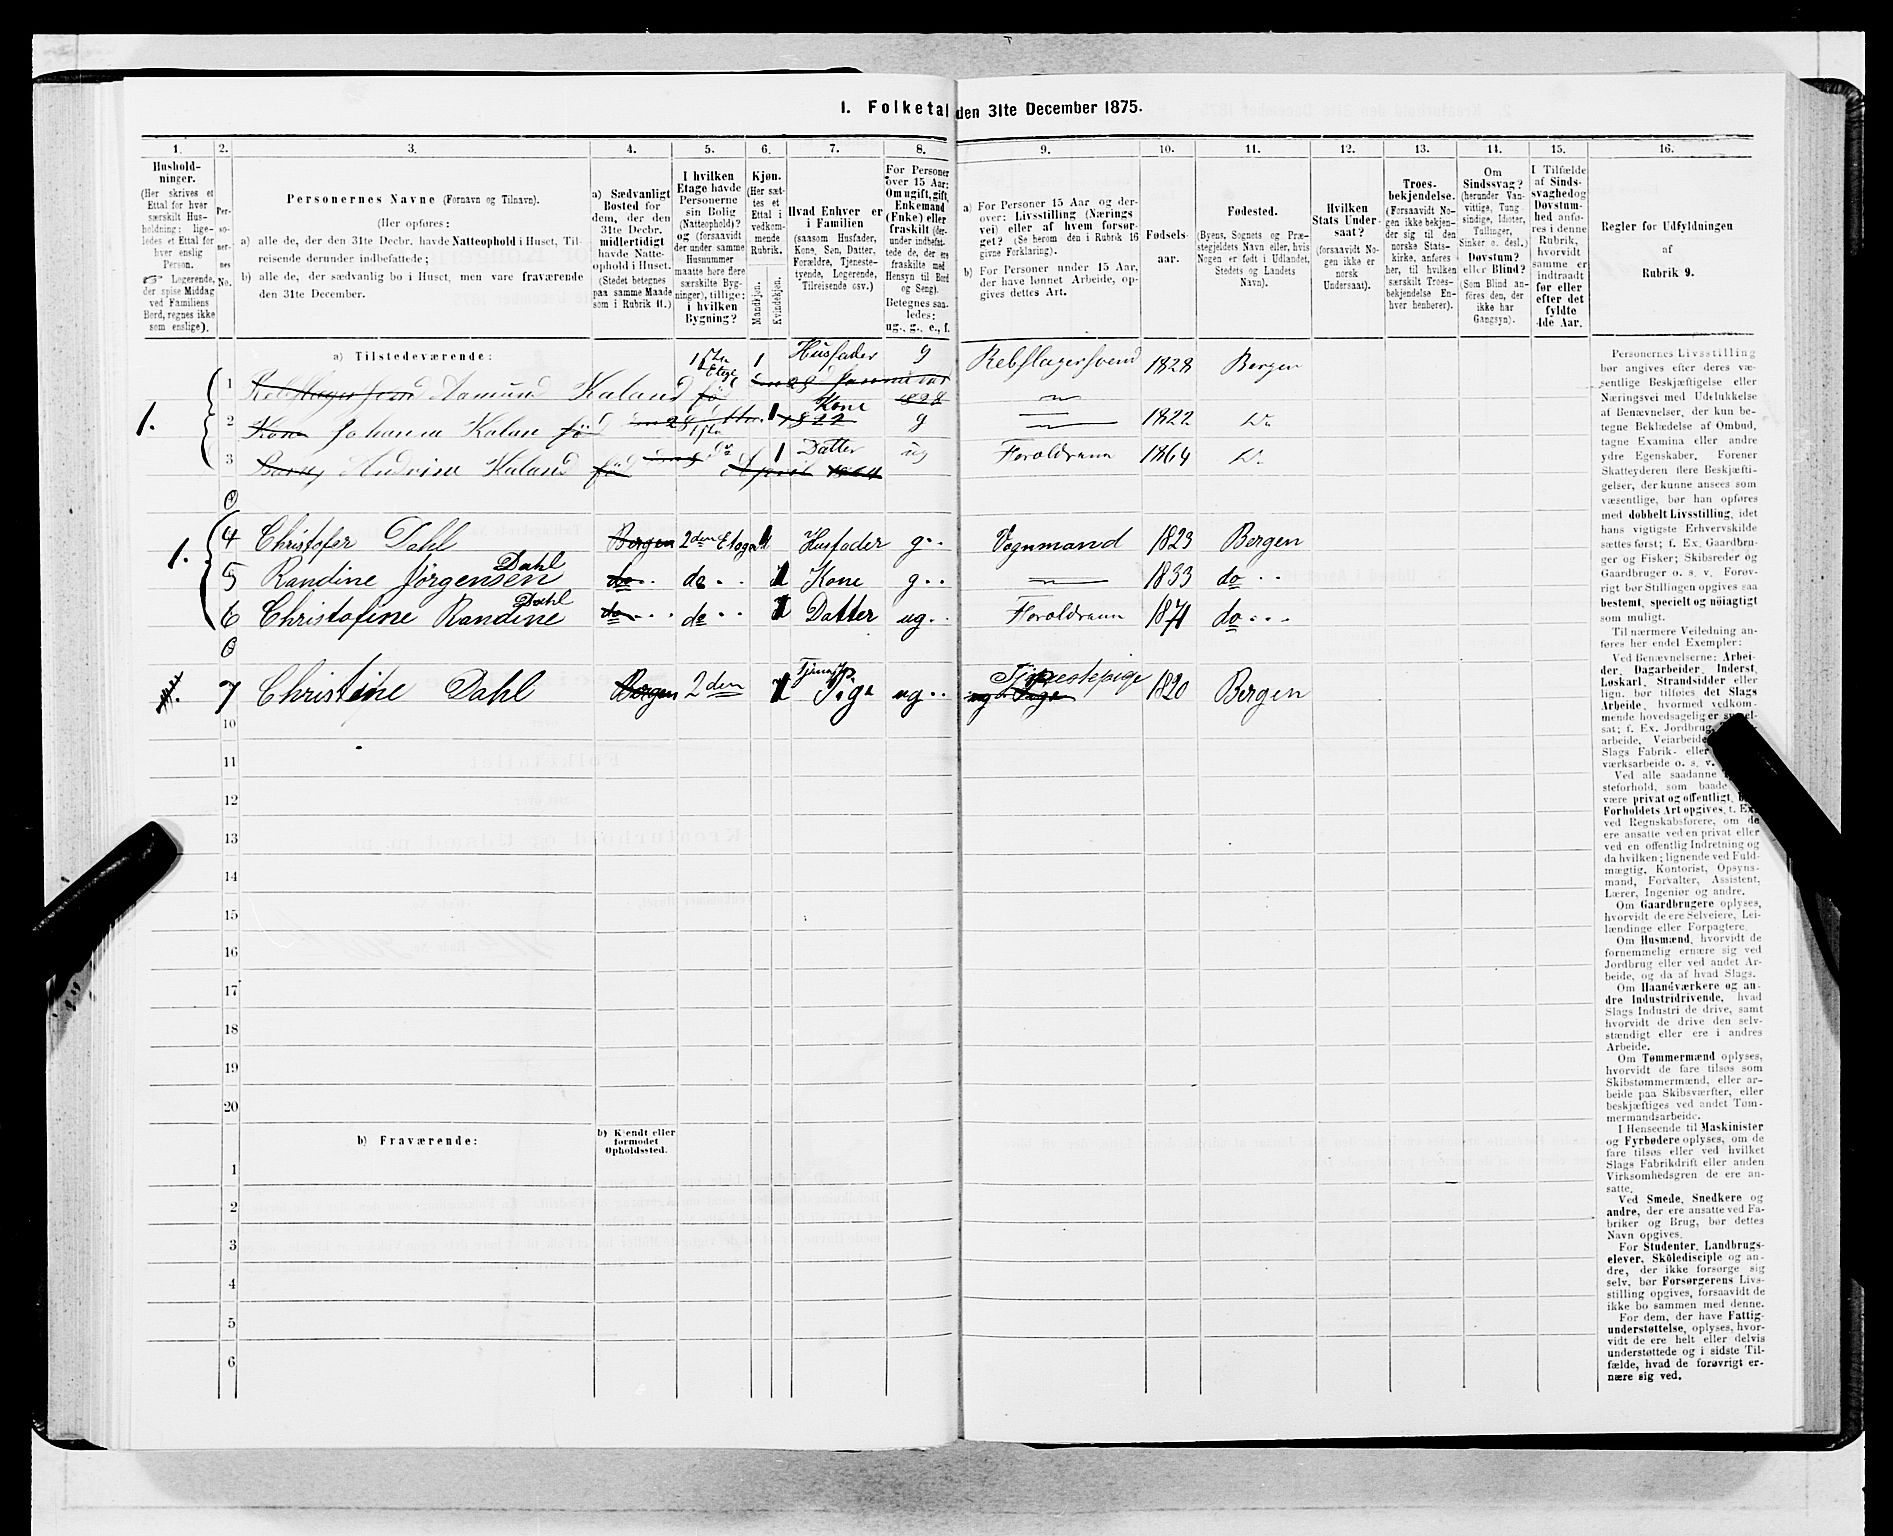 1. Folketal den 31te December 1875.
1. 2. 3. 4. 5. 6. 7. 8. 9. 10. 11. 12. 13. 14. 15. 16.
Hushold-
ninger.
(Her skrives et
Ettal for hver
særskilt Hus-
holdning; lige-
ledes et Ettal for
hver enslig
Person.
Logerende,
der spise Middag
ved Familiens
Bord, regnes ikke
som enslige).
Per-
so-
ner-
nes
No.
Personernes Navne (Fornavn og Tilnavn).
(Her opføres:
a) alle de, der den 31te Decbr. havde Natteophold i Huset, Til-
reisende derunder indbefattede;
b) alle de, der sædvanlig bo i Huset, men vare fraværende
den 31te December.
a) Sædvanligt
Bosted for
dem, der den
31te Decbr.
midlertidigt
havde Natte-
ophold i Huset.
(Stedet betegnes
paa samme Maade
som i Rubrik 11.)
I hvilken
Etage havde
Personerne
sin Bolig
(Natteophold)?
og (forsaavidt
der under samme
Husnummer
maatte høre flere
særskilte Byg-
ninger), tillige:
i hvilken
Bygning?
Kjøn.
(Her sæt-
tes et
Ettal i
vedkom-
mende
Rubrik.
Mandkjøn.
Kvindekjøn.
Hvad Enhver er
i Familien
(saasom Husfader,
Kone, Søn, Datter,
Forældre, Tjeneste-
tyende, Logerende,
Tilreisende osv.)
For Personer
over 15 Aar:
Om ugift, gift,
Enkemand
(Enke) eller
fraskilt (der-
under indbefat-
tede de, der ere
fraskilte med
Hensyn til Bord
og Seng).
Betegnes saa-
ledes:
ug., g., e., f.
a) For Personer 15 Aar og der-
over: Livsstilling (Nærings
vei) eller af hvem forsør-
get? (Se herom den i Rubrik 16
givne Forklaring).
b) For Personer under 15 Aar,
der have lønnet Arbeide, op-
gives dettes Art.
Fødsels-
aar.
Fødested.
(Byens, Sognets og Præ-
stegjeldets Navn eller, hvis
Nogen er født i Udlandet,
Stedets og Landets
Navn).
Hvilken
Stats Under-
saat?
(forsaavidt No-
gen ikke er
norsk
Undersaat).
Troes-
bekjendelse.
(Forsaavidt No-
gen ikke bekjen-
der sig til den
norske Stats-
kirke, anføres
her, til hvilken
særskilt Troes-
bekjendelse En-
hver henhører).
Om
Sindssvag?
(herunder Van-
vittige, Tung-
sindige, Idioter,
Tullinger,
Sinker o. desl.)
Døvstum?
eller Blind?
(Som Blind an-
føres den, der
ikke har
Gangsyn).
I Tilfælde
af Sinds-
svaghed og
Døvstum-
hed anfø-
res i denne
Rubrik,
hvorvidt
samme er
indtraadt
før eller
efter det
fyldte
4de Aar.
Regler for Udfyldningen
af
Rubrik 9.
a) Tilstedeværende:
1. 1 Rebslagersvend Aamund Kaland fø 1ste Etage 1 Husfader g Rebslagersvend 1828 Bergen
1828
2 Kone Johanna Kalan fø 1 Kone 1822 g 1822 Do
3 Barn Kaland fø do 1 Datter ug Foroldrene 1864 Do
April 1864
1. 4 Christofer Dahl Bergen 2den Etage 1 Husfader g.. Vognmand 1823 Bergen
5 Randine Jörgensen Dahl do.. do.. 1 Kone g.. 1833 do..
6 Christofine Randine Dahl do.. do.. 1 Datter ug.. Foroldrene 1871 do...
7 Christine Dahl Bergen 2den 1 Pige ug.. Tjenestepige 1820 Bergen
ug Pige
10
11
12
13
14
15
16
17
18
19
20
b) Fraværende:
b) Kjendt eller
formodet
Opholdssted.
1
2
3
4
5
6
Personernes Livsstilling
bør angives efter deres væ-
sentlige Beskjæftigelse eller
Næringsvei med Udelukkelse
af Benævnelser, der kun be-
tegne Beklædelse af Ombud,
tagne Examina eller andre
ydre Egenskaber. Forener
Skatteyderen flere Beskjæfti-
gelser, der kunne ansees som
væsentlige, bør han opføres
med dobbelt Livsstilling, idet
hans vigtigste Erhvervskilde
sættes først; f. Ex. Gaardbru-
ger og Fisker; Skibsreder og
Gaardbruger o. s. v. Forøv-
rigt bør Stillingen opgives saa
bestemt, specielt og nöiagtigt
som muligt.
Til nærmere Veiledning an-
føres her endel Exempler:
Ved Benævnelserne: Arbei-
der, Dagarbeider, Inderst,
Løskarl, Strandsidder eller
lign. bør tilføies, det Slags
Arbeide, hvormed vedkom-
mende hovedsagelig er syssel-
sat; f. Ex. Jordbrug,
arbeide, Veiarbeide,
Slags Fabrik- eller
værksarbeide o. s. v.
Ved alle saadanne
steforhold, som baade
være privat og offentlig,
Forholdets Art opgives, t. Ex.
ved Regnskabsførere, om de
ere ansatte ved en privat eller
ved en offentlig Indretning og
da hvilken; lignende ved Fuld-
mægtig, Kontorist, Opsyns-
mand, Forvalter, Assistent,
Lærer, Ingeniør og andre.
Om Gaardbrugere oplyses,
hvorvidt de ere Selveiere, Lei-
lændinge eller Forpagtere.
Om Husmænd, hvorvidt de
fornemmelig ernære sig ved
Jordbrug eller ved andet Ar-
beide, og da af hvad Slags.
Om Haandværkere og an-
dre Industridrivende, hvad
Slags Industri de drive, samt
hvorvidt de drive den selv-
stændigt eller ere i andres
Arbeide.
Om Tømmermænd oplyses,
hvorvidt de fare tilsøs som
Skibstømmermænd, eller ar-
beide paa Skibsværfter, eller
beskjæftiges ved andet Tøm-
mermandsarbeide.
I Henseende til Maskinister
og Fyrbødere oplyses, om de
fare tilsøs eller ved hvilket
Slags Fabrikdrift eller anden
Virksomhedsgren de ere an-
satte.
Ved Smede, Snedkere og
andre, der ere ansatte ved Fa-
briker og Brug, bør dettes
Navn opgives.
For Studenter, Landbrugs-
elever, Skoledisciple og an-
dre, der ikke forsørge sig
selv, bør Forsørgerens Livs-
stilling opgives, forsaavidt de
ikke bo sammen med denne.
For dem, der have Fattig-
understøttelse, oplyses, hvor-
vidt de ere helt eller delvis
understøttede og i sidste Til-
fælde, hvad de forøvrigt er-
nære sig ved.